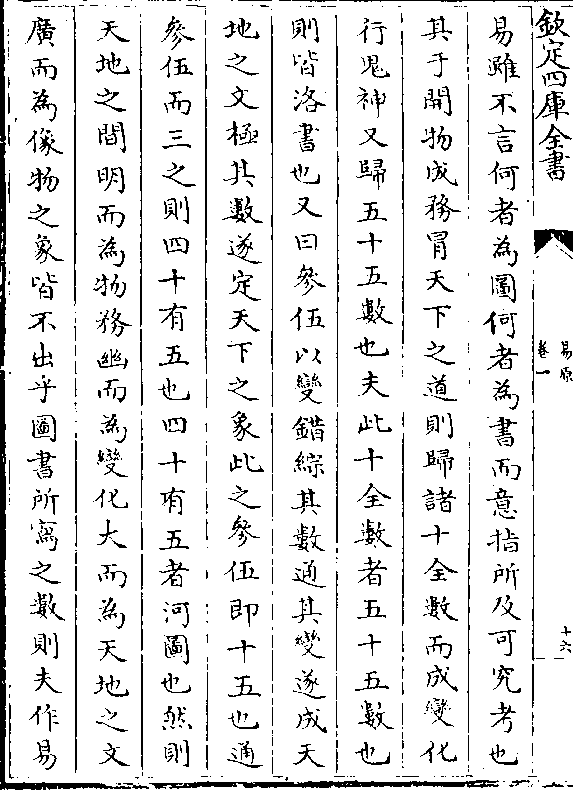 欽定四庫全書
易原
卷一
十六
易雖不言何者為圖何者為書而意指所及可究考也
其于開物成務冒天下之道則歸諸十全數而成變化
行鬼神又歸五十五數也夫此十全數者五十五數也
則皆洛書也又曰參伍以變錯綜其數通其變遂成天
地之文極其數遂定天下之象此之參伍即十五也通
參伍而三之則四十有五也四十有五者河圖也然則
天地之間明而為物務幽而為變化大而為天地之文
廣而為像物之象皆不出乎圖書所寓之數則夫作易